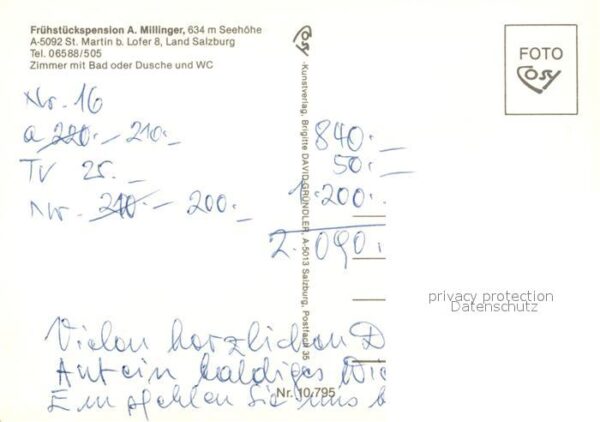 Frühstückspension A. Millinger, 634 m Seehöhe
A-5092 St. Martin b. Lofer 8, Land Salzburg
Tel. 06588/505
Zimmer mit Bad oder Dusche und WC
Cosy -Kunstverlag, Brigitte DAVID-GRÜNDLER, A-5013 Salzburg, Postfach 35
FOTO
Cosy
Nr. 16
a 220.- 210.-
TV 25.-
NW. 210.- 200.-
840.-
50.-
1.200.
2.090.
privacy protection
Datenschutz
Vielen herzlichen D
Auf ein baldiges Wie
Empfehlen Sie uns b
Nr. 10.795